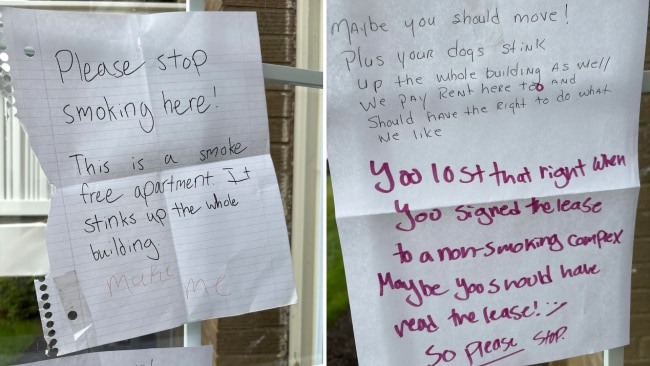 Please stop
smoking here!
This is a smoke
free apartment. It
stinks up the whole
building.
Make me
Maybe you should move!
Plus your dogs stink
up the whole building as well
We pay rent here too and
should have the right to do what
we like
You lost that right when
you signed the lease
to a non-smoking complex
Maybe you should have
read the lease! :)
So please stop.